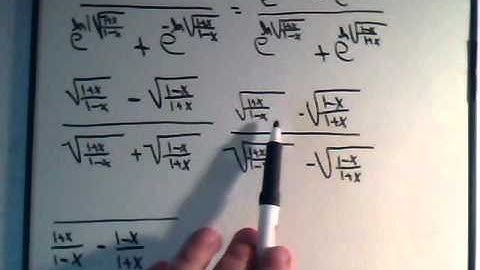 e^{ln√((1+x)/(1-x))} + e^{-ln√((1+x)/(1-x))} =
(√((1+x)/(1-x)) - √((1-x)/(1+x))) / (√((1+x)/(1-x)) + √((1-x)/(1+x))) (√((1+x)/(1-x)) - √((1-x)/(1+x))) / (√((1+x)/(1-x)) - √((1-x)/(1+x)))
(1+x)/(1-x) - (1-x)/(1+x)